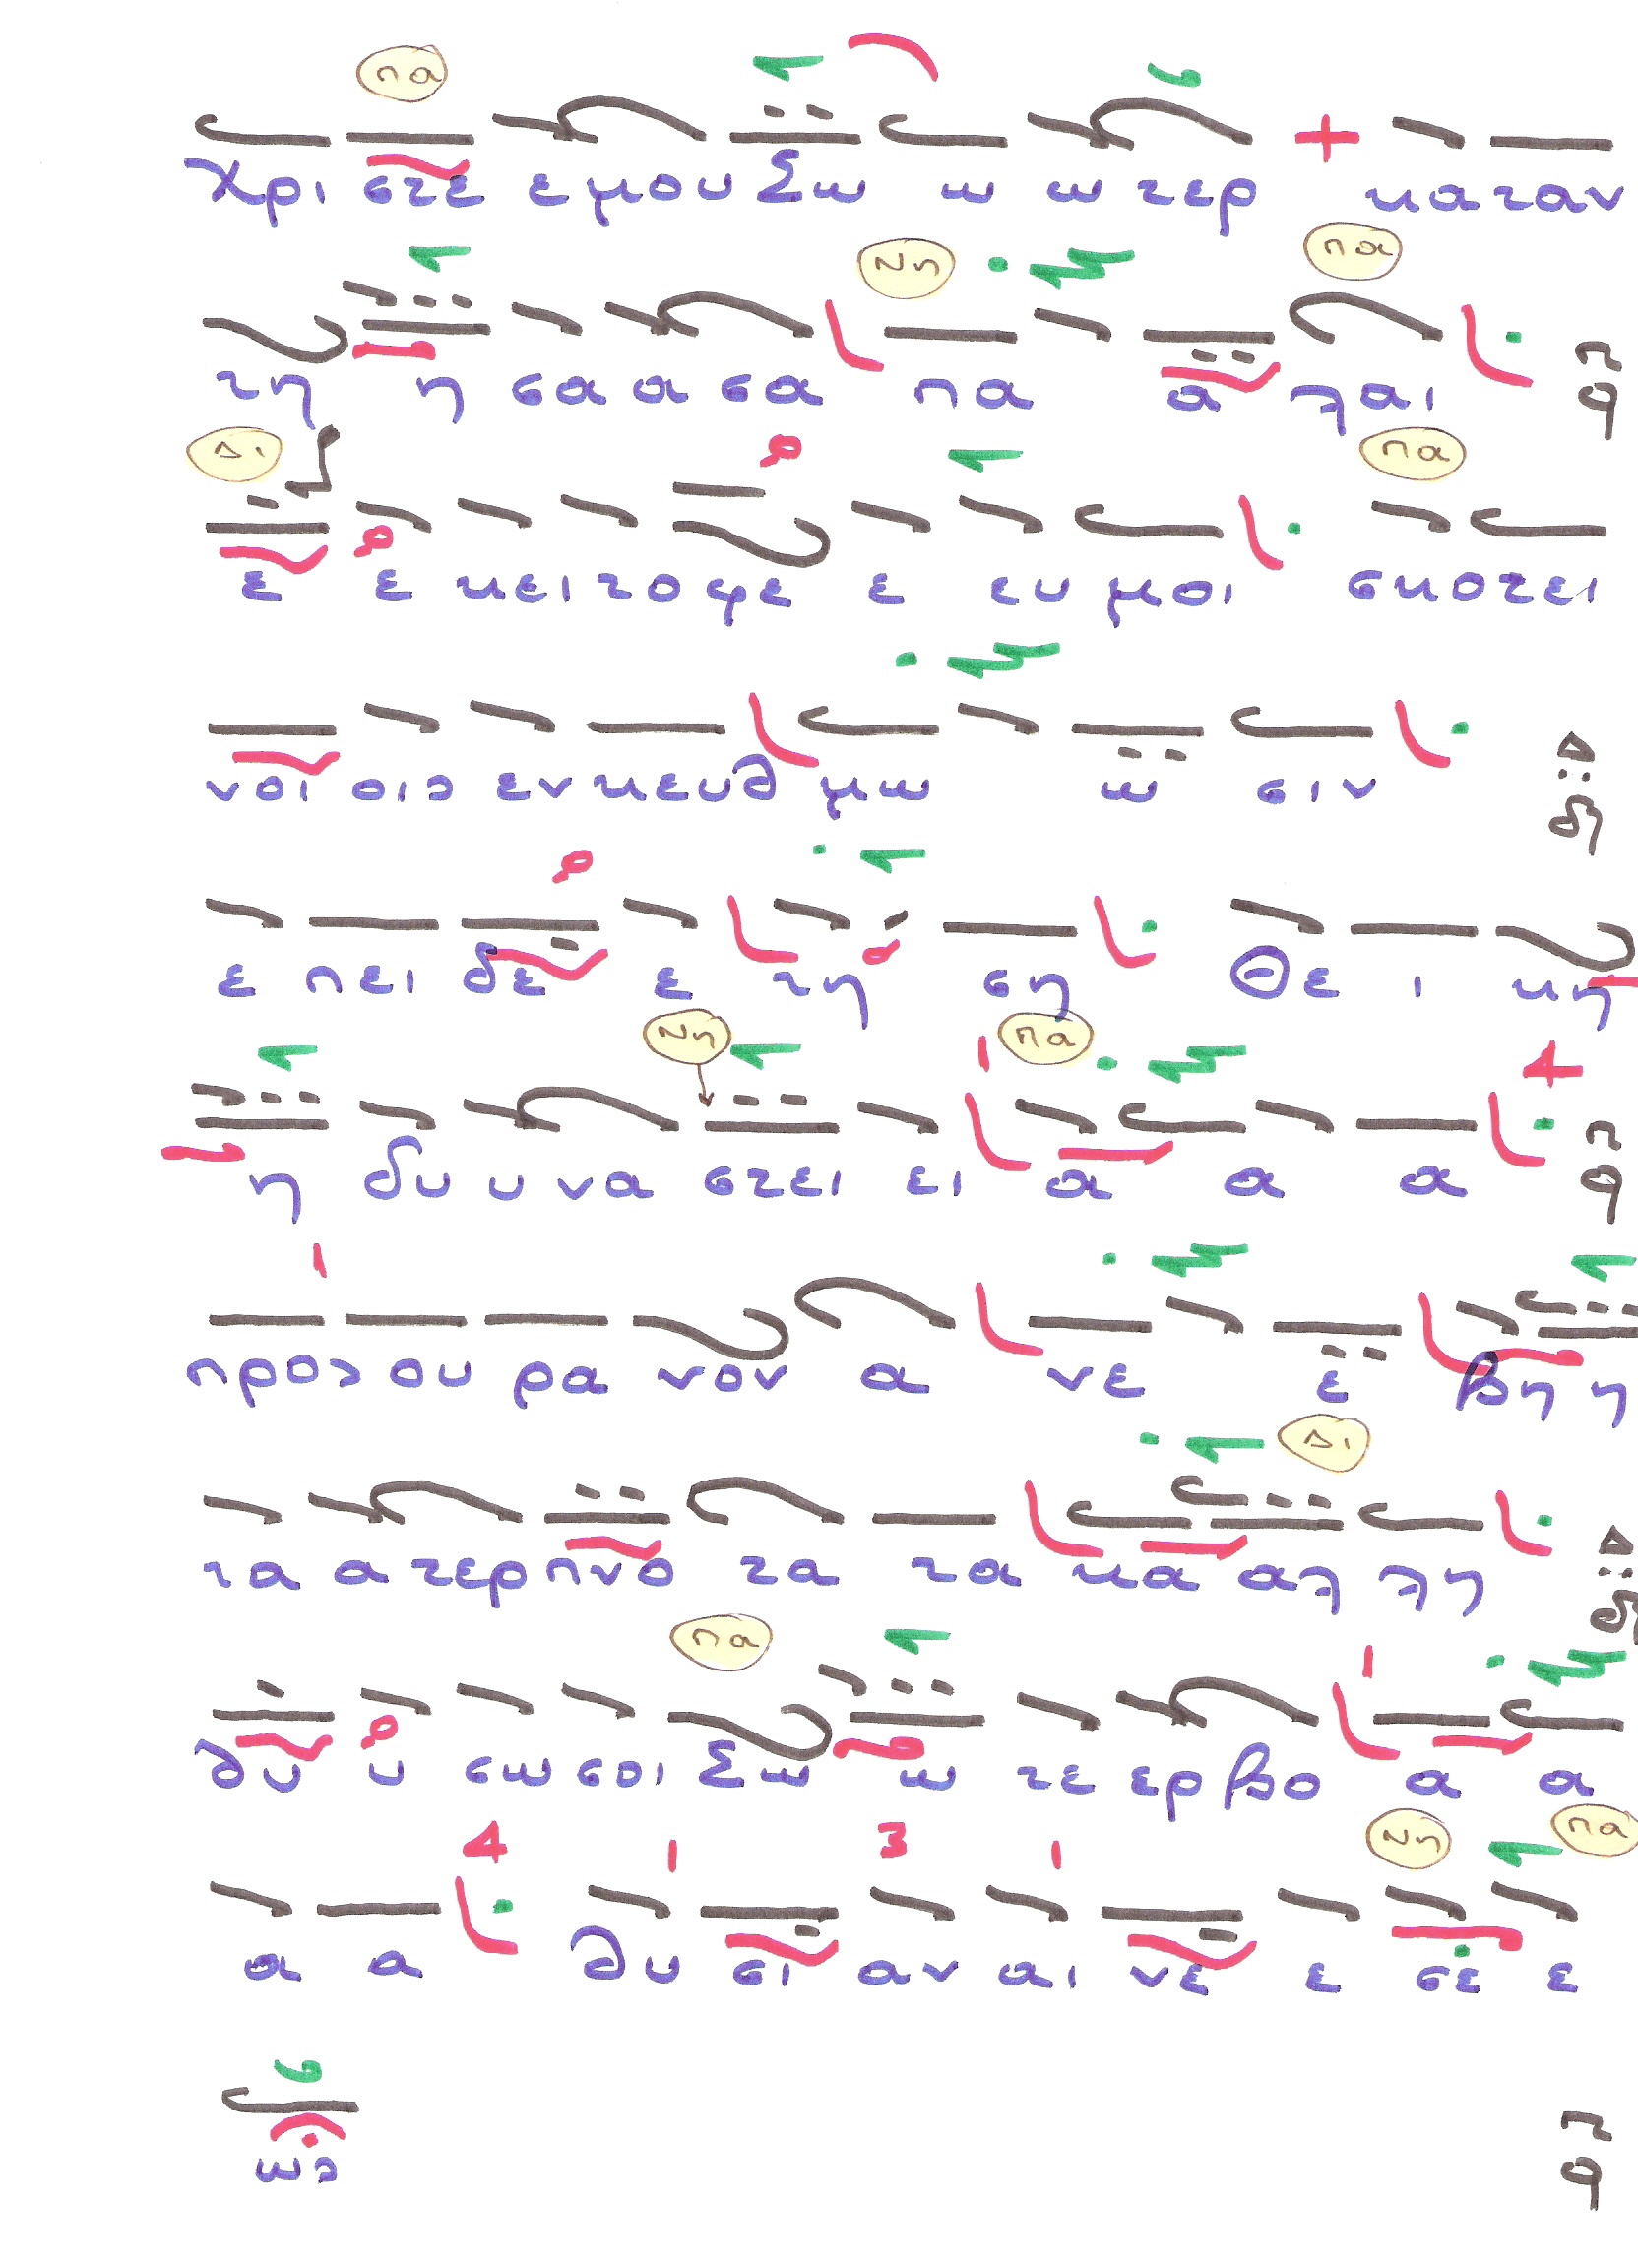 πα
Χρι στε ε μου Σω ω ω τερ + κα ταν
Νη πα
τη η σα α σα πα α λαι π q
Δι πα
ε ε κει το φε ε ευ μοι σκο τει
νοι οις εν κευθ μω ω σιν Δ δ
ε πει δε ε τη ση Θε ι κη
Νη 1 πα 4
η δυ υ να στει ει α α α π q
1
προς ου ρα νον α νε ε βη η
Δι
τα α τερ πνο τα τα κα αλ λη Δ δ
πα 1
θυ υ σω σοι Σω ω τε ερ βο α α
4 1 3 1 Νη πα
α α θυ σι αν αι νε ε σε ε
ως π q